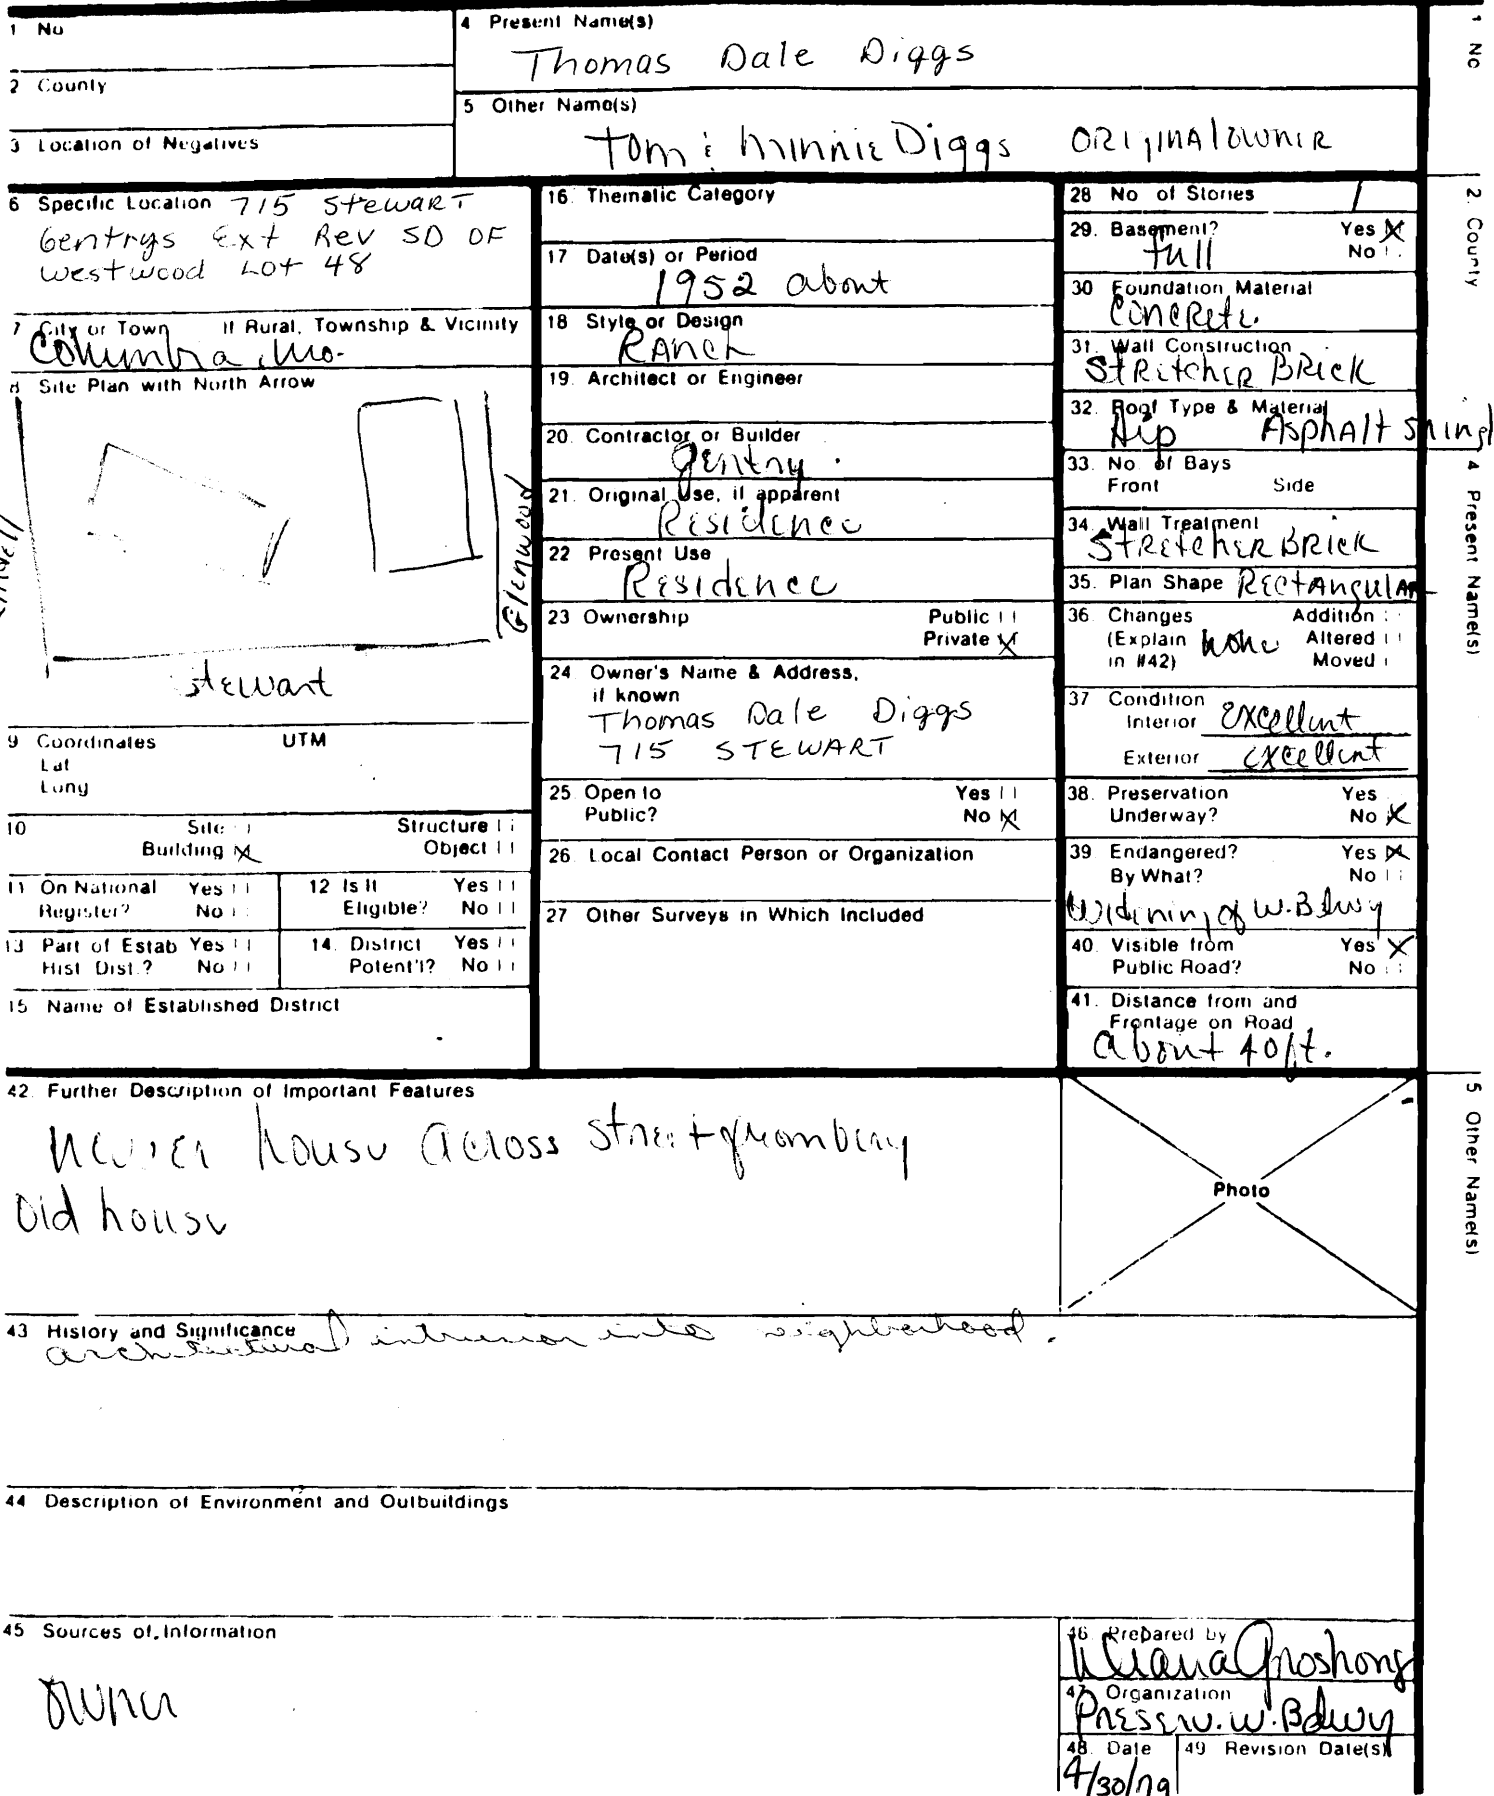 1 No
2 County
3 Location of Negatives
4 Present Name(s)
Thomas Dale Diggs
5 Other Name(s)
Tom & Minnie Diggs ORIGINAL OWNER
6 Specific Location 715 Stewart
Gentrys Ext Rev SD OF
Westwood Lot 48
7 City or Town If Rural, Township & Vicinity
Columbia, Mo.
8 Site Plan with North Arrow
Glenwood
Stewart
9 Coordinates UTM
Lat
Long
10 Site Structure
Building X Object
11 On National Register? Yes No
12 Is It Eligible? Yes No
13 Part of Estab Hist Dist.? Yes No
14. District Potent'l? Yes No
15 Name of Established District
16. Thematic Category
17 Date(s) or Period
1952 about
18 Style or Design
Ranch
19. Architect or Engineer
20. Contractor or Builder
Gentry
21. Original Use, if apparent
Residence
22 Present Use
Residence
23 Ownership Public
Private X
24 Owner's Name & Address,
if known
Thomas Dale Diggs
715 STEWART
25 Open to Yes
Public? No X
26. Local Contact Person or Organization
27 Other Surveys in Which Included
28 No of Stories 1
29. Basement? Yes X
full No
30 Foundation Material
Concrete.
31. Wall Construction
Stretcher Brick
32. Roof Type & Material
Hip Asphalt Shingl
33. No of Bays
Front Side
34. Wall Treatment
Stretcher Brick
35. Plan Shape Rectangular
36. Changes Addition
(Explain none Altered
in #42) Moved
37 Condition
Interior excellent
Exterior excellent
38. Preservation Yes
Underway? No X
39 Endangered? Yes X
By What? No
Widening of W. Bdwy
40. Visible from Yes X
Public Road? No
41. Distance from and
Frontage on Road
about 40 ft.
42. Further Description of Important Features
newer house across street from
old house
Photo
43 History and Significance
architectural intrusion into neighborhood.
44 Description of Environment and Outbuildings
45 Sources of Information
owner
46. Prepared by
Groshong
47 Organization
Preserv. W. Bdwy
48. Date 49 Revision Date(s)
4/30/79
1 No
2. County
4 Present Name(s)
5 Other Name(s)